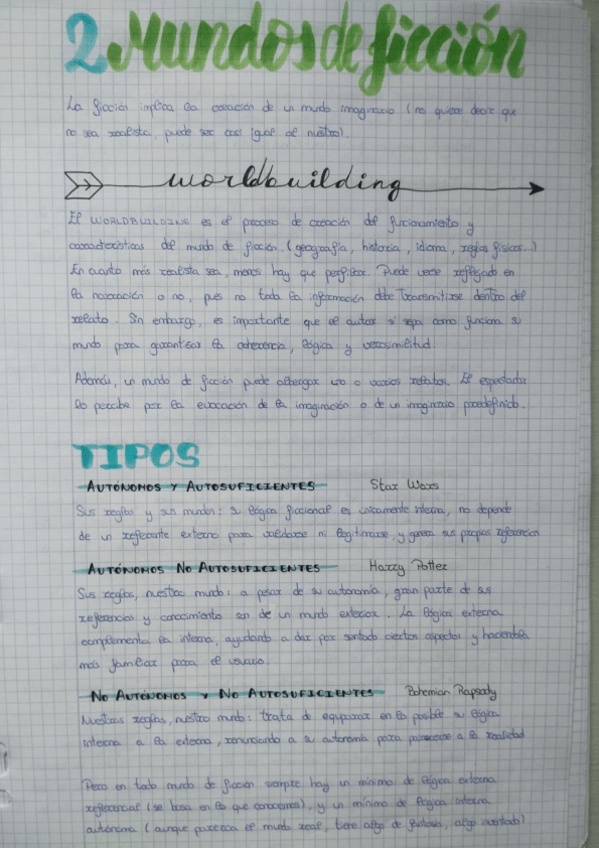 2 Mundos de ficción
La ficción implica la creación de un mundo imaginario (no quiere decir que
no sea realista, puede ser casi igual al nuestro).
worldbuilding
El WORLDBUILDING es el proceso de creación del funcionamiento y
características del mundo de ficción (geografía, historia, idioma, reglas físicas...)
En cuanto más realista sea, menos hay que perfilar. Puede verse reflejado en
la narración o no, pues no toda la información debe transmitirse dentro del
relato. Sin embargo, es importante que el autor sí sepa como funciona su
mundo para garantizar la coherencia, lógica y verosimilitud.
Además, un mundo de ficción puede albergar uno o varios relatos. El espectador
lo percibe por la evocación de la imaginación o de un imaginario predefinido.
TIPOS
AUTÓNOMOS Y AUTOSUFICIENTES Star Wars
Sus reglas y sus mundos: su lógica ficcional es únicamente interna, no depende
de un referente externo para validarse ni legitimarse, y genera sus propias referencias
AUTÓNOMOS NO AUTOSUFICIENTES Harry Potter
Sus reglas, nuestro mundo: a pesar de su autonomía, gran parte de sus
referencias y conocimiento son de un mundo exterior. La lógica externa
complementa la interna, ayudando a dar por sentado ciertos aspectos y haciéndola
más familiar para el usuario.
NO AUTÓNOMOS Y NO AUTOSUFICIENTES Bohemian Rapsody
Nuestras reglas, nuestro mundo: trata de equiparar en lo posible su lógica
interna a la externa, renunciando a su autonomía para parecerse a la realidad
Pero en todo mundo de ficción siempre hay un mínimo de lógica externa
referencial (se basa en lo que conocemos), y un mínimo de lógica interna
autónoma (aunque parezca el mundo real, tiene algo de fantasía, algo inventado)